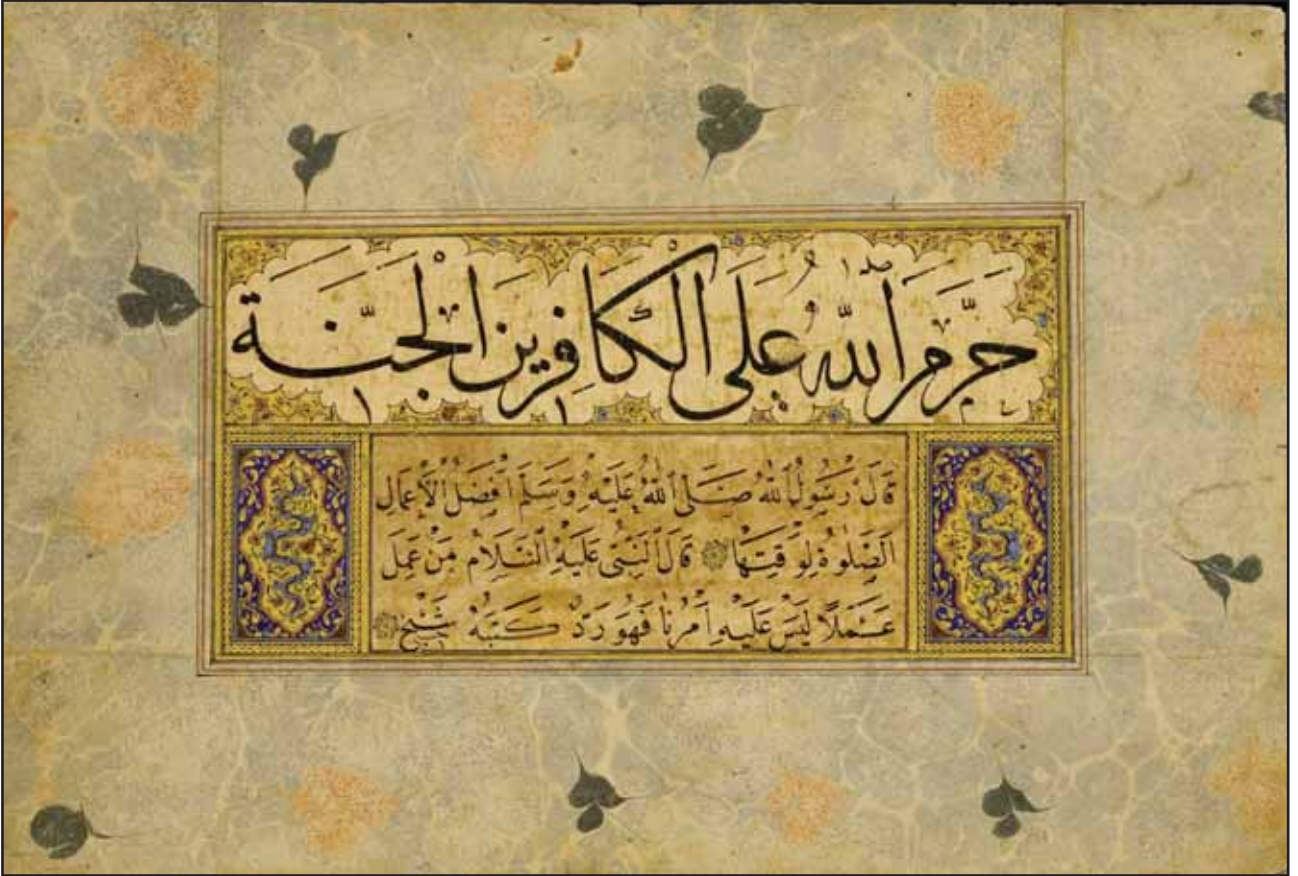 حَرَّمَ ٱللّٰهُ عَلَى الْكَافِرِينَ الْجَنَّةَ
قَالَ رَسُولُ ٱللّٰهِ صَلَّى ٱللّٰهُ عَلَيْهِ وَسَلَّمَ أَفْضَلُ الْأَعْمَالِ
الصَّلٰوةُ لِوَقْتِهَا قَالَ ٱلنَّبِيُّ عَلَيْهِ السَّلَامُ مَنْ عَمِلَ
عَمَلًا لَيْسَ عَلَيْهِ أَمْرُنَا فَهُوَ رَدٌّ كَتَبَهُ